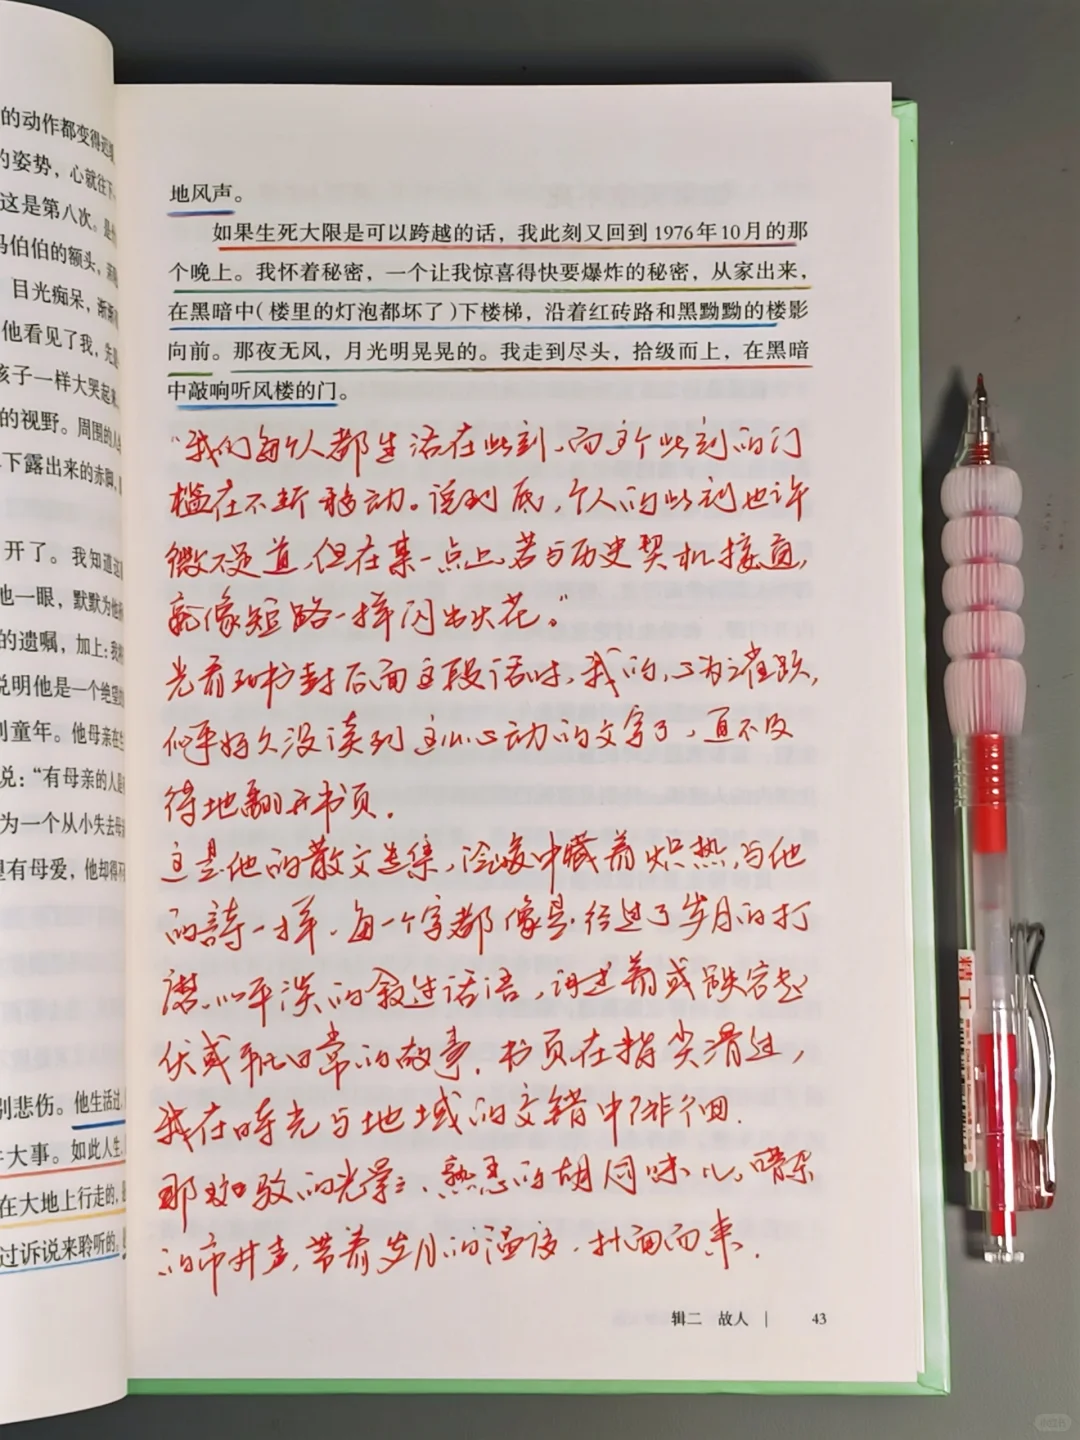 的动作都变得迟
的姿势，心就往下
这是第八次。
冯伯伯的额头，
目光痴呆，渐渐
他看见了我，先
孩子一样大哭起来
的视野。周围的人
下露出来的赤脚，
开了。我知道这
他一眼，默默为他
的遗嘱，加上：我
说明他是一个绝望
到童年。他母亲在
说：“有母亲的人是
为一个从小失去母
望有母爱，他却得不
别悲伤。他生活过，
大事。如此人生，
在大地上行走的，
过诉说来聆听的。
地风声。
如果生死大限是可以跨越的话，我此刻又回到1976年10月的那
个晚上。我怀着秘密，一个让我惊喜得快要爆炸的秘密，从家出来，
在黑暗中（楼里的灯泡都坏了）下楼梯，沿着红砖路和黑黝黝的楼影
向前。那夜无风，月光明晃晃的。我走到尽头，拾级而上，在黑暗
中敲响听风楼的门。
“我们每个人都生活在此刻，而这个此刻的门
槛在不断移动。说到底，个人的此刻也许
微不足道，但在某一点上，若与历史契机接通，
就像短路一样闪出火花。”
当看到书封后面这段话时，我的心为之雀跃，
似乎好久没读到这么心动的文字了，直不及
待地翻开书页．
这是他的散文选集，冷峻中藏着炽热，与他
的詩一样．每一个字都像是经过了岁月的打
磨．以平淡的叙述话语，讲述着或跌宕起
伏或平凡日常的故事．书页在指尖滑过，
我在时光与地域的交错中徘徊．
那斑驳的光影、熟悉的胡同味儿、嘈杂
的市井声，带着岁月的温度．扑面而来．
辑二 故人 | 43
精工